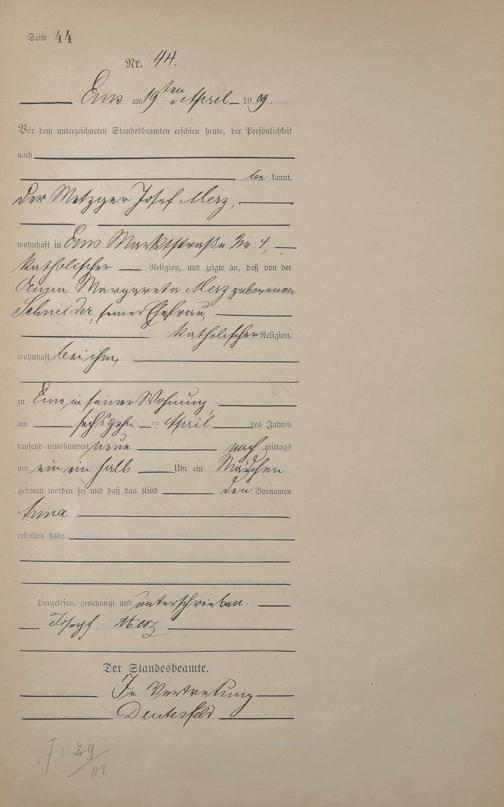 Seite 44
Nr. 44.
Ems am 19ten April 1909.
Vor dem unterzeichneten Standesbeamten erschien heute, der Persönlichkeit
nach
be kannt,
der Metzger Josef Merz,
wohnhaft in Ems Marktstraße No 4,
katholischer Religion, und zeigte an, daß von der
Anna Margareta Merz geborenen
Schneider, seiner Ehefrau,
katholischer Religion,
wohnhaft bei ihm,
zu Ems in seiner Wohnung
am sechszehn ten April des Jahres
tausend neunhundert neun nach mittags
um ein ein halb Uhr ein Mädchen
geboren worden sei und daß das Kind den Vornamen
Anna
erhalten habe.
Vorgelesen, genehmigt und unterschrieben.
Josef Merz
Der Standesbeamte.
In Vertretung
29/08